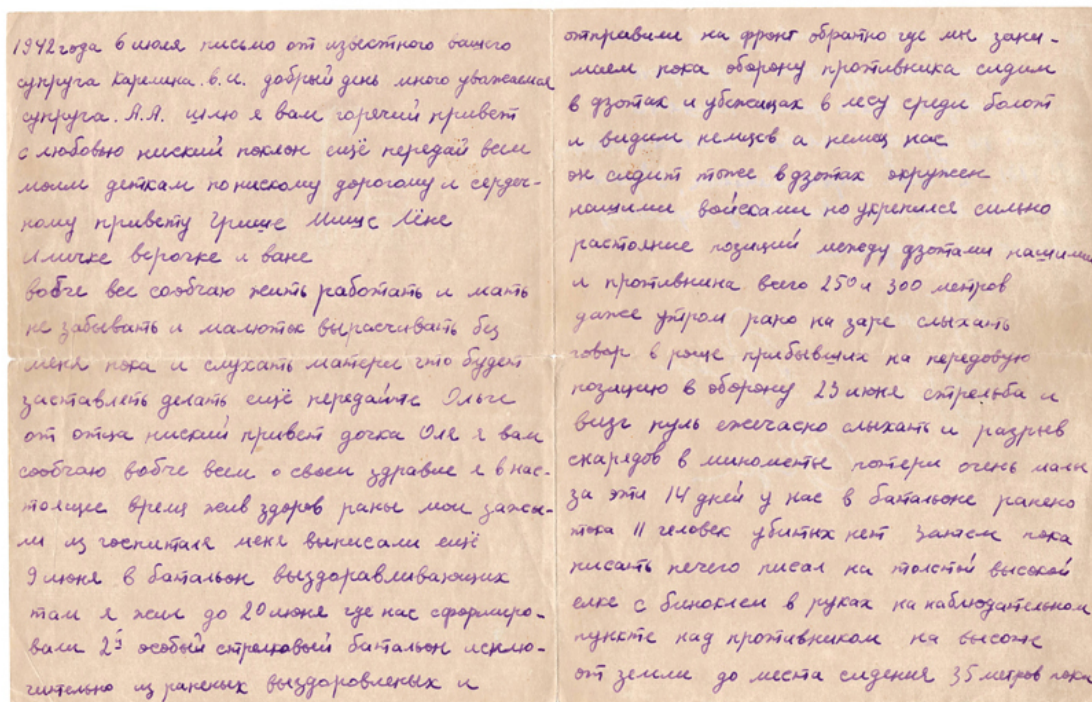 1942 года 6 июля письмо от известного вашего
супруга Карешина. в.и. добрый день много уважаемая
супруга. А.А. шлю я вам горячий привет
с любовью ниский поклон ещё передай всем
моим деткам по нискому дорогому и сердеч-
ному привету Грише Мише Лёне
Имичке верочке и ване
вобче все сообчаю жить работать и мать
не забывать и малюток вырасчивать без
меня пока и слухать матери что будет
заставлеть делать ещё передайте Ольге
от отца ниский привет дочка Оля я вам
сообчаю вобче всем о своем здравие я в нас-
тоящее время жив здоров раны мои зажы-
ли из госпиталя меня выписали ещё
9 июня в батальон выздоравливающих
там я жил до 20 июня где нас сформиро-
вали 2й особый стрелковый батальон исклю-
чительно из раненых выздоровленых и
отправили на фронт обратно где мы зани-
маем пока оборону противника сидим
в дзотах и убежищах в лесу среди болот
и видим немцев а немец нас
он сидит тоже в дзотах окружен
нашими войсками но укрепился сильно
растояние позиций между дзотами нашими
и противника всего 250 и 300 метров
даже утром рано на заре слыхать
говор в роще прибывших на передовую
позицию в оборону 23 июня стрельба и
визг пуль ежечасно слыхать и разрыв
снарядов в миномёты потери очень малы
за эти 14 дней у нас в батальоне ранено
тока 11 человек убитых нет Затем пока
писать нечего писал на толстой высокой
елке с биноклем в руках на наблюдательном
пункте над противником на высоте
от земли до места сидения 35 метров пока